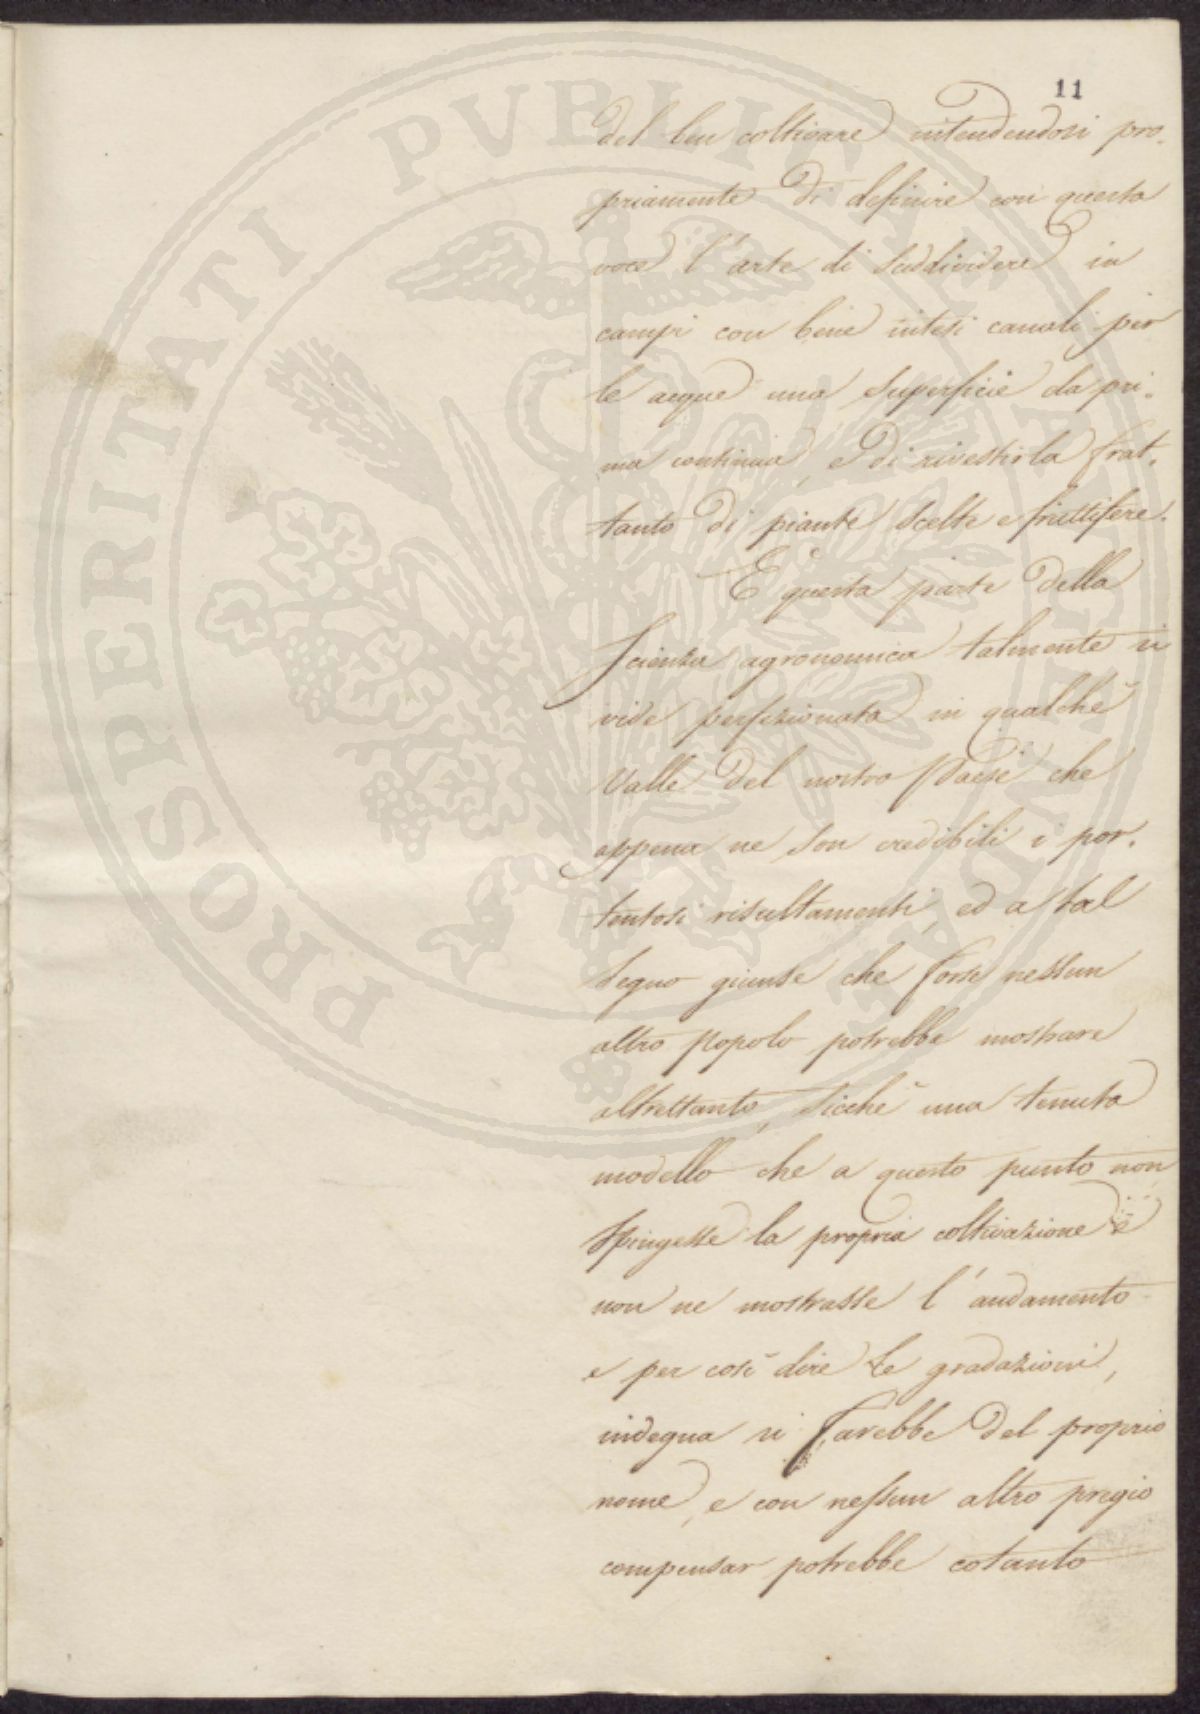 11
del ben coltivare intendendosi pro-
priamente di definire con questa
voce l'arte di suddividere in
campi con bene intesi canali per
le acque una superficie da pri-
ma continua, e di rivestirla frat-
tanto di piante scelte e fruttifere.
E questa parte della
Scienza agronomica talmente si
vide perfezionata in qualche
Valle del nostro Paese che
appena ne son credibili i por-
tentosi risultamenti, ed a tal
segno giunse che forse nessun
altro popolo potrebbe mostrare
altrettanto, sicchè una tenuta
modello che a questo punto non
spingesse la propria coltivazione e
non ne mostrasse l'andamento
e per così dire le gradazioni,
indegna si farebbe del proprio
nome, e con nessun altro pregio
compensar potrebbe cotanto
PROSPERITATI PVBLICAE AVGENDAE